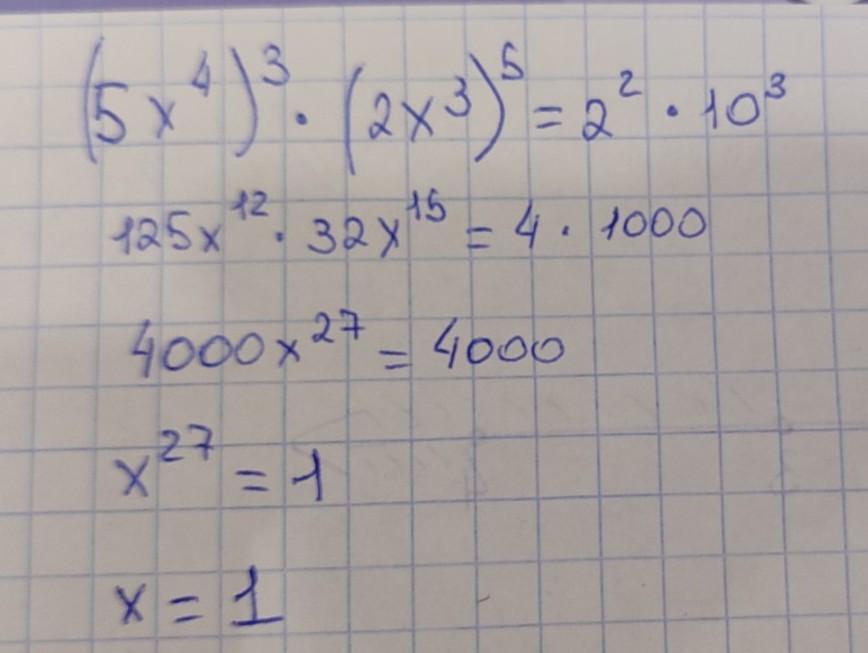 (5x⁴)³ · (2x³)⁵ = 2² · 10³
125x¹² · 32x¹⁵ = 4 · 1000
4000x²⁷ = 4000
x²⁷ = 1
x = 1